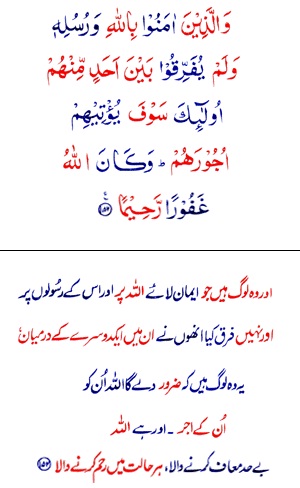 وَالَّذِيْنَ اٰمَنُوْا بِاللّٰهِ وَرُسُلِهٖ
وَلَمْ يُفَرِّقُوْا بَيْنَ اَحَدٍ مِّنْهُمْ
اُولٰٓئِكَ سَوْفَ يُؤْتِيْهِمْ
اُجُوْرَهُمْ ؕ وَكَانَ اللّٰهُ
غَفُوْرًا رَّحِيْمًا ۧ ﴿۱۵۲﴾
اور وہ لوگ ہیں جو ایمان لائے اللہ پر اور اس کے رسُولوں پر
اور نہیں فرق کیا انھوں نے ان میں ایک دوسرے کے درمیان
یہ وہ لوگ ہیں کہ ضرور دے گا اللہ اُن کو
اُن کے اجر ۔ اور ہے اللہ
بے حد معاف کرنے والا، ہر حالت میں رحم کرنے والا ﴿۱۵۲﴾